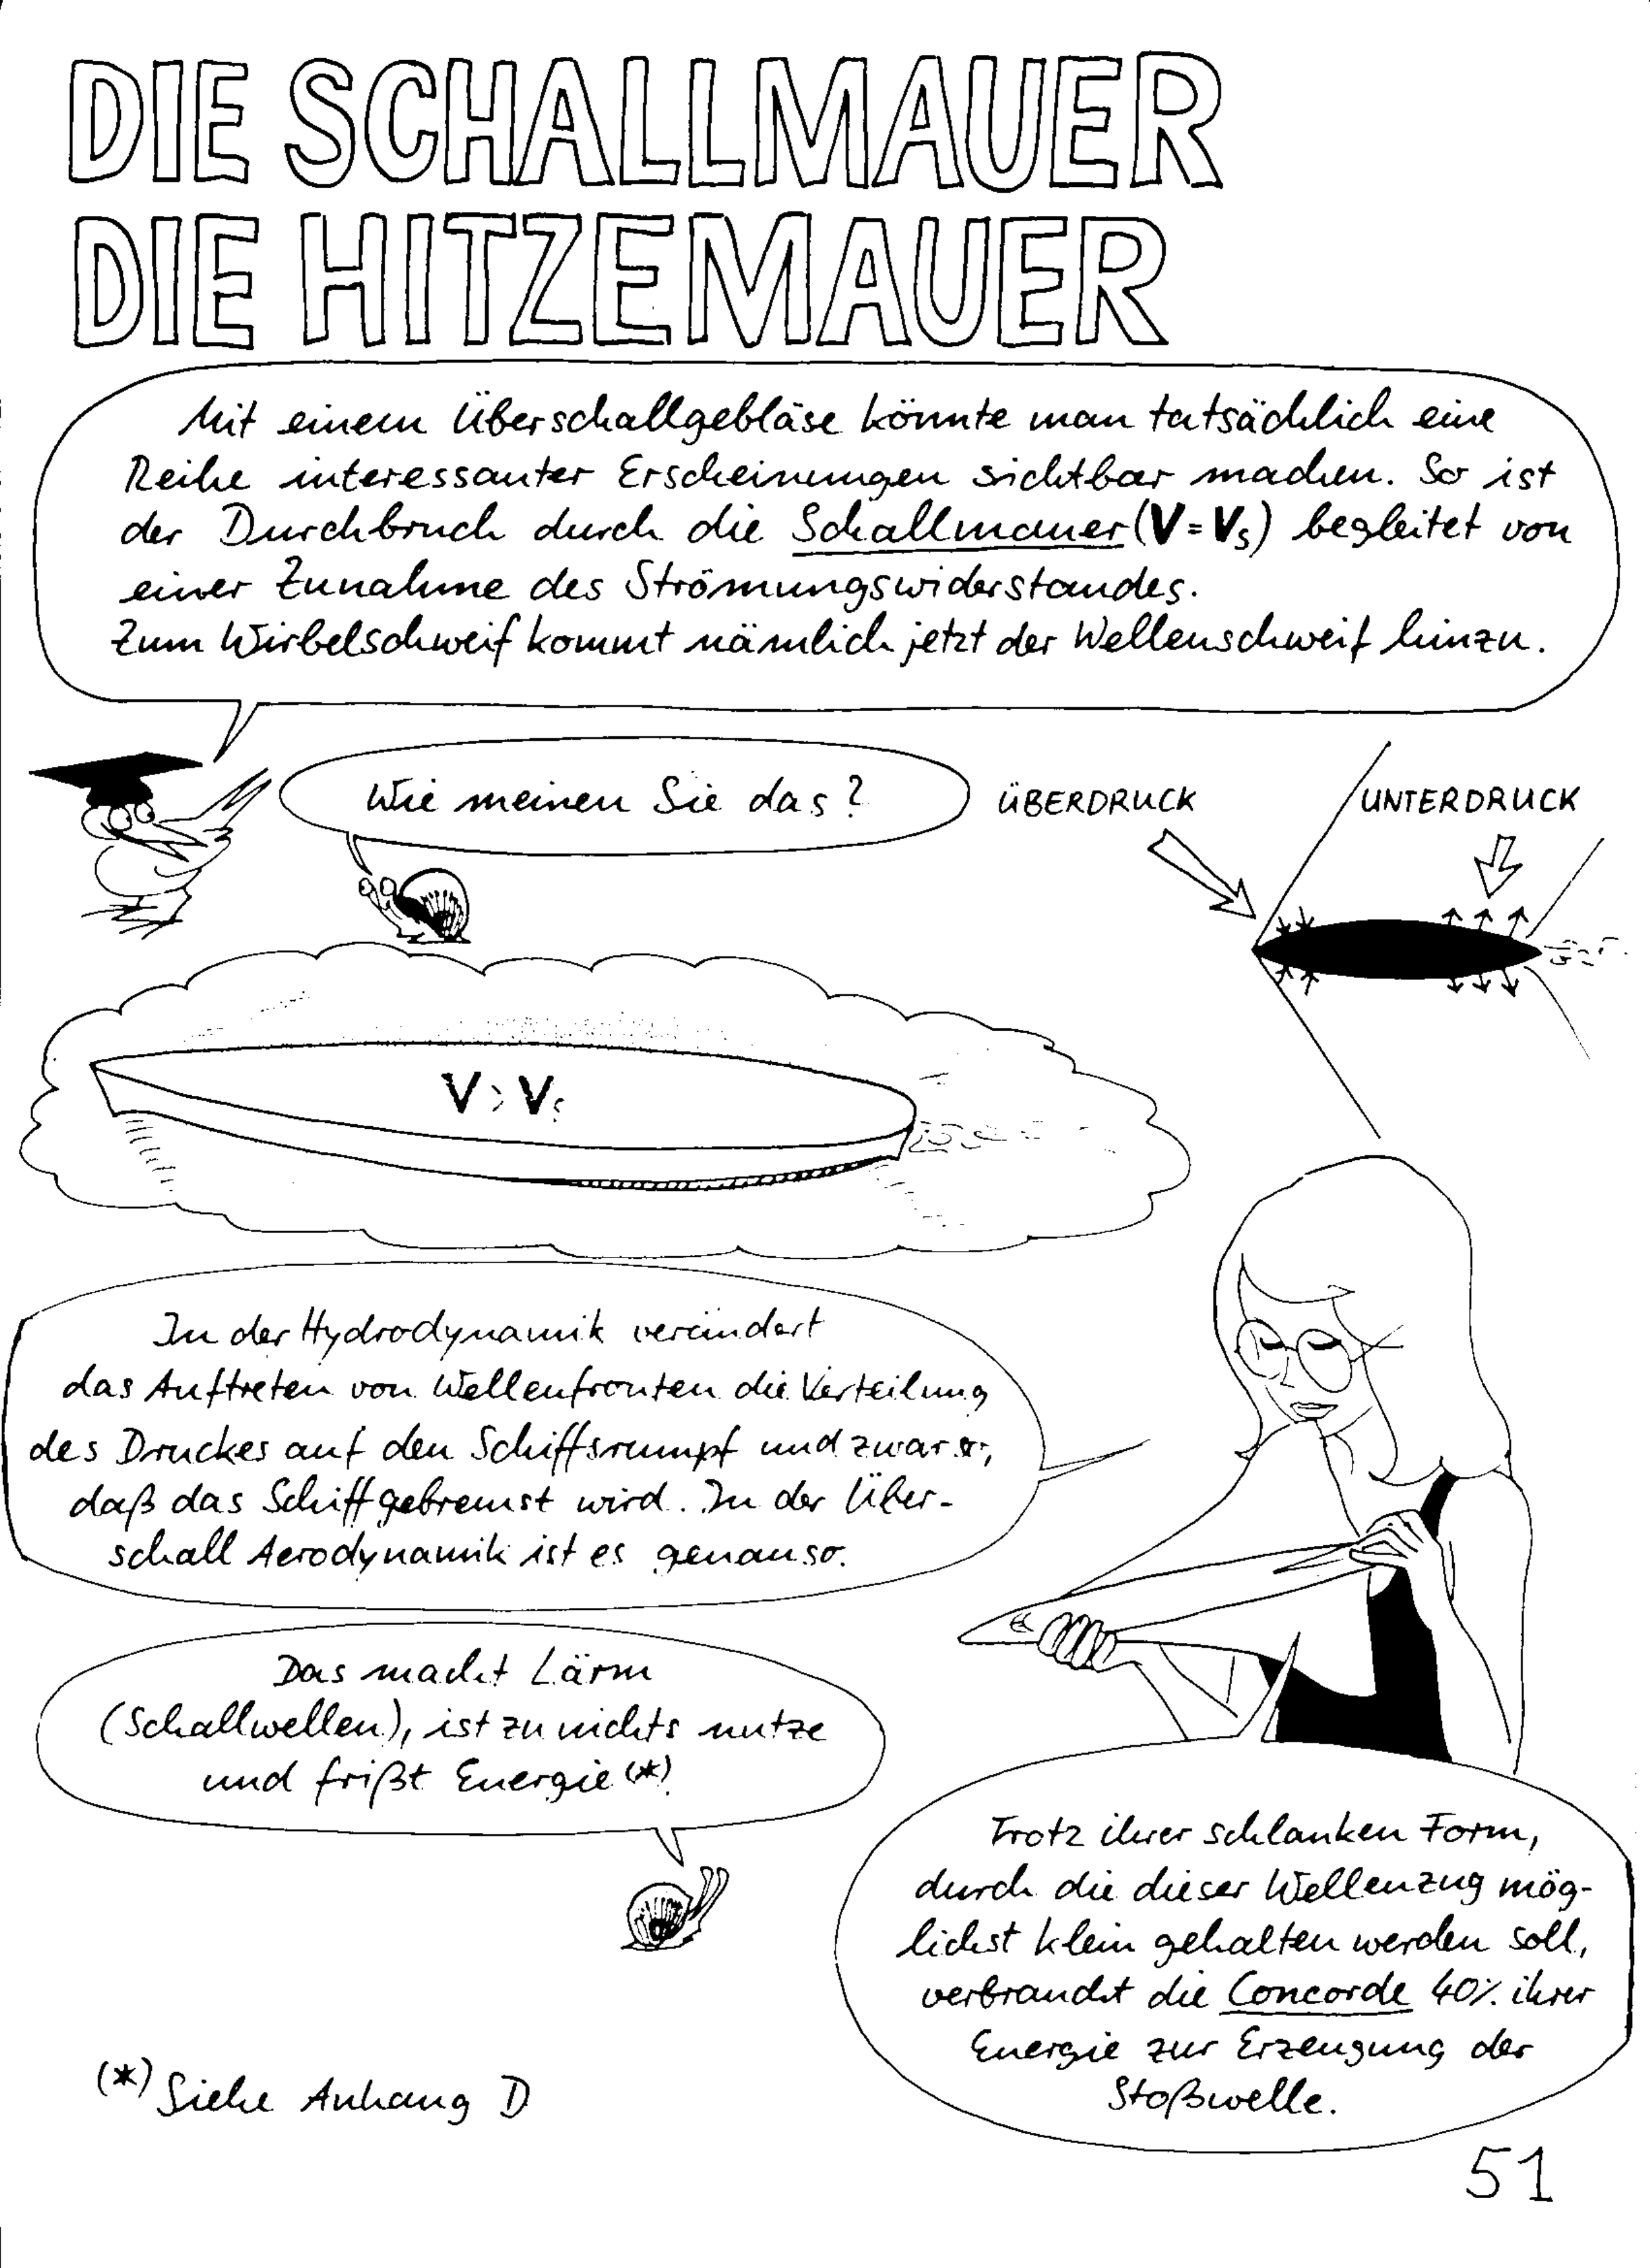 DIE SCHALLMAUER
DIE HITZEMAUER
Mit einem Überschallgebläse könnte man tatsächlich eine
Reihe interessanter Erscheinungen sichtbar machen. So ist
der Durchbruch durch die Schallmauer (V = Vs) begleitet von
einer Zunahme des Strömungswiderstandes.
Zum Wirbelschweif kommt nämlich jetzt der Wellenschweif hinzu.
Wie meinen Sie das?
ÜBERDRUCK
UNTERDRUCK
V > Vs
In der Hydrodynamik verändert
das Auftreten von Wellenfronten die Verteilung
des Druckes auf den Schiffsrumpf und zwar so,
daß das Schiff gebremst wird. In der Über-
schall Aerodynamik ist es genauso.
Das macht Lärm
(Schallwellen), ist zu nichts nutze
und frißt Energie (*)
Trotz ihrer schlanken Form,
durch die dieser Wellenzug mög-
lichst klein gehalten werden soll,
verbraucht die Concorde 40% ihrer
Energie zur Erzeugung der
Stoßwelle.
(*) Siehe Anhang D
51